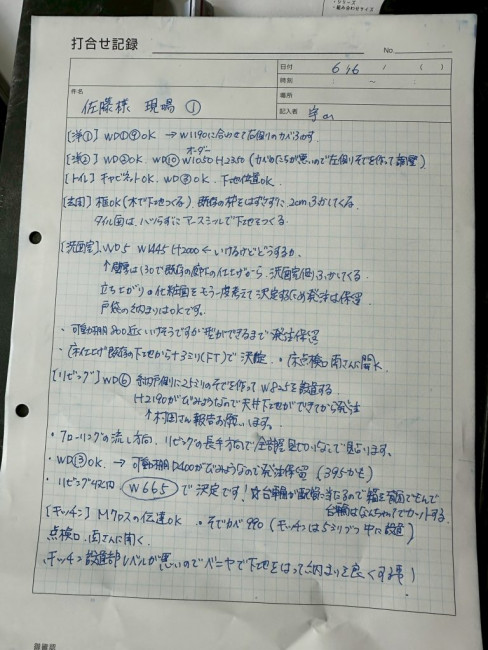 打合せ記録
No
日付 6/16 ( )
時刻 : ~ :
件名 場所
佐藤様 現場 ① 記入者
[洋①] WD①⑨OK → W1190に合わせて右側のカベふかす.
オーダー
[洋②] WD②OK. WD⑩ W1050 H2350 (カベのたちが悪いので左側にそでを作って調整)
[トイレ] キャビネットOK. WD③OK. 下地位置OK.
[玄関] 框OK (木で下地つくる). 既存の枠をはずさずに 2cmふかしてくる.
タイル面は、ハツらずにアースシールで下地をつくる.
[洗面室] WD5 W1445 H2000 ← いけるけどどうするか.
↑ 層厚は130で既存の廊下の仕上げから. 洗面室側ふかしてくる.
立ち上がりの化粧図をもう一度考えて決定するため発注は保留
戸袋の納まりはOKです.
・可動棚 800近くいけそうですが型ができるまで発注保留
・床仕上げ 既存の下地から+3ミリ(FT)で決定. ・床点検口 南さんに聞く
[リビング] WD⑥ 和戸側に25ミリのそでを作って W825を設置する.
H2190がびみょうなので天井下地ができてから発注
↑ 村岡さん報告お願いします.
・フローリングの流し方向. リビングの長手方向で全部屋見切りなしで見れます.
・WD⑬OK. → 可動棚 D400がびみょうなので発注保留 (395かも)
・リビング収納 W665 で決定です!
[キッチン] Mクロスの伝達OK ・そでカベ 990 (キッチンは5ミリづつ中に設置)
点検口. 南さんに聞く.
・キッチン設置部レベルが悪いのでベニヤで下地をはって納まりを良くする事!